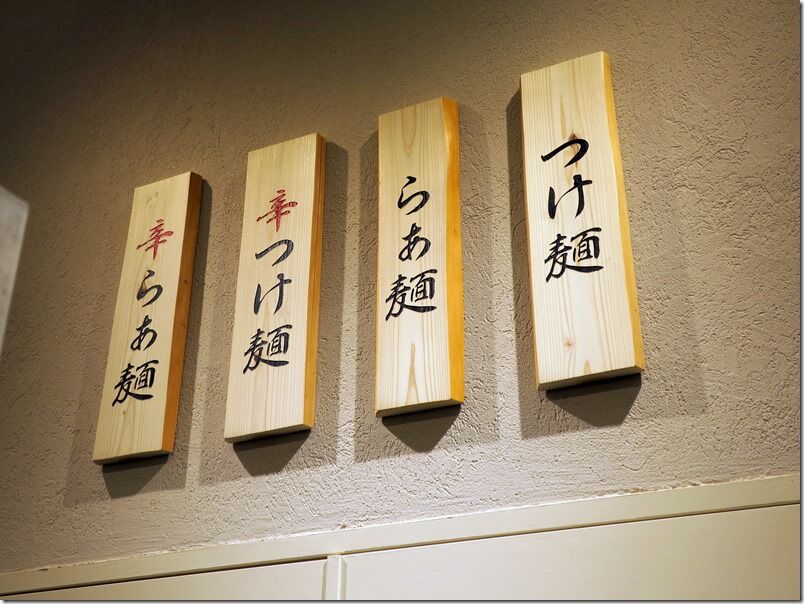 つけ麺
らあ麺
辛つけ麺
辛らあ麺